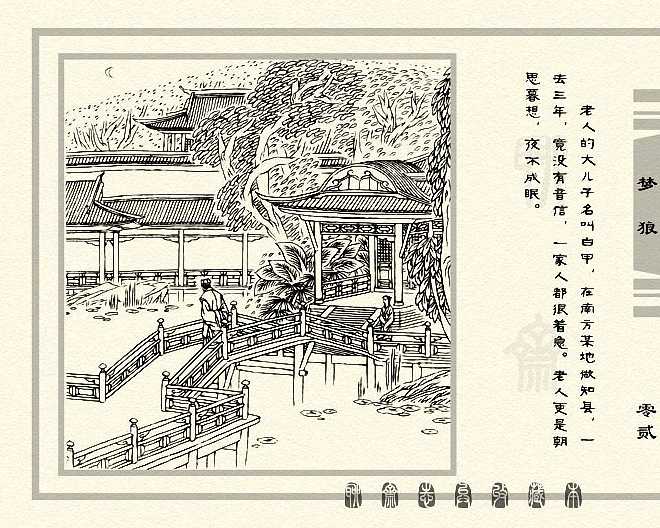 老人的大儿子名叫白甲，在南方某地做知县，一
去三年，竟没有音信，一家人都很着急。老人更是朝
思暮想，夜不成眠。
梦狼
零贰